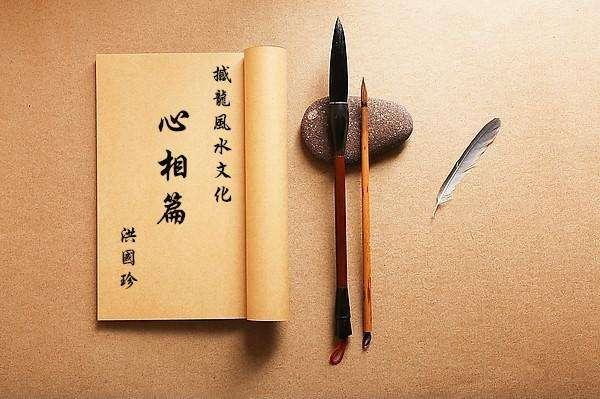 撼龍風水文化
心相篇
洪國珍